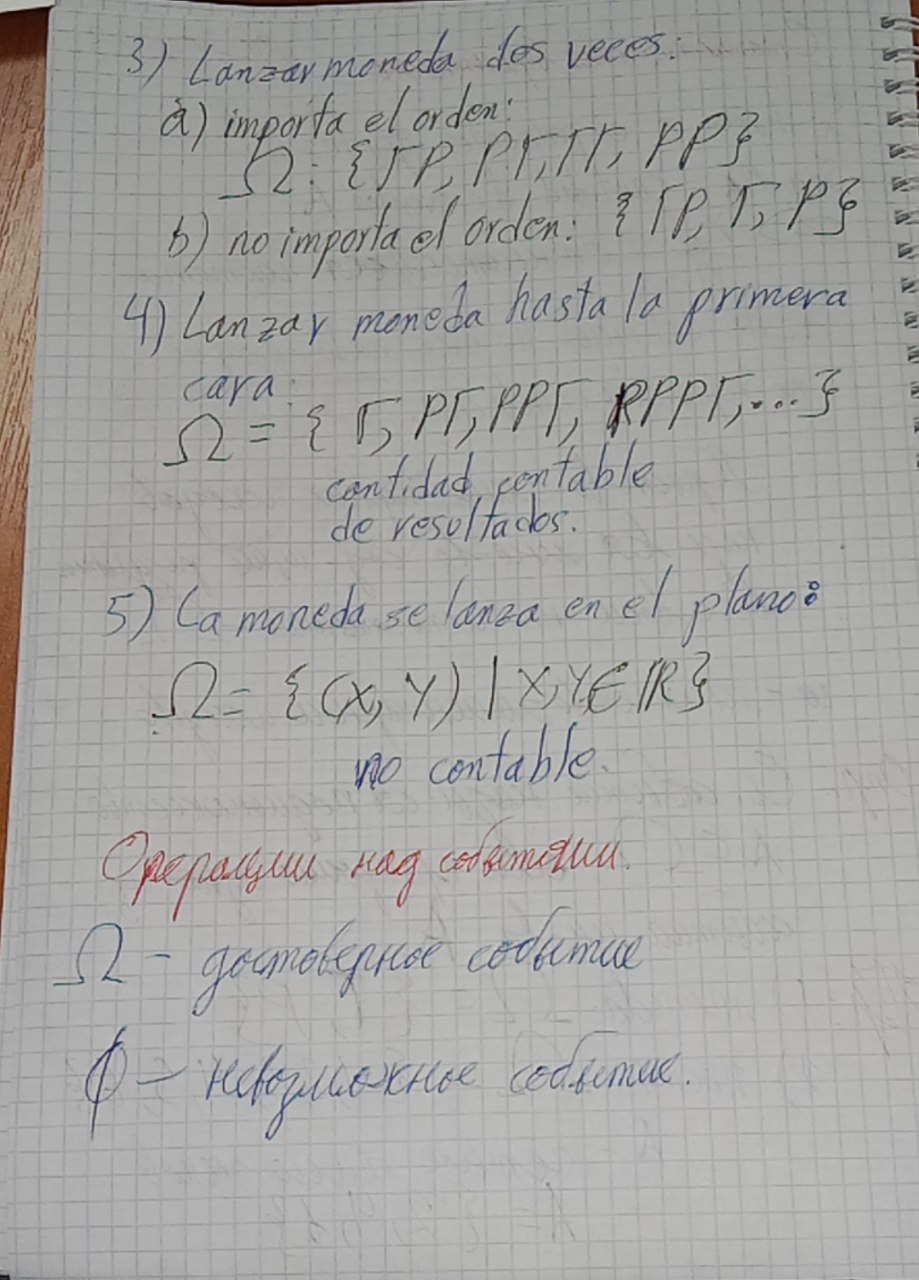 3) Lanzar moneda dos veces:
a) importa el orden:
Ω: {ГP, PГ, ГГ, PP}
b) no importa el orden: {ГP, Г, P}
4) Lanzar moneda hasta la primera
cara:
Ω = { Г, PГ, PPГ, PPPГ, ...}
cantidad contable
de resultados.
5) La moneda se lanza en el plano:
Ω = {(X, Y) | X, Y ∈ ℝ}
no contable.
Операции над событиями.
Ω - достоверное событие
∅ - невозможное событие.